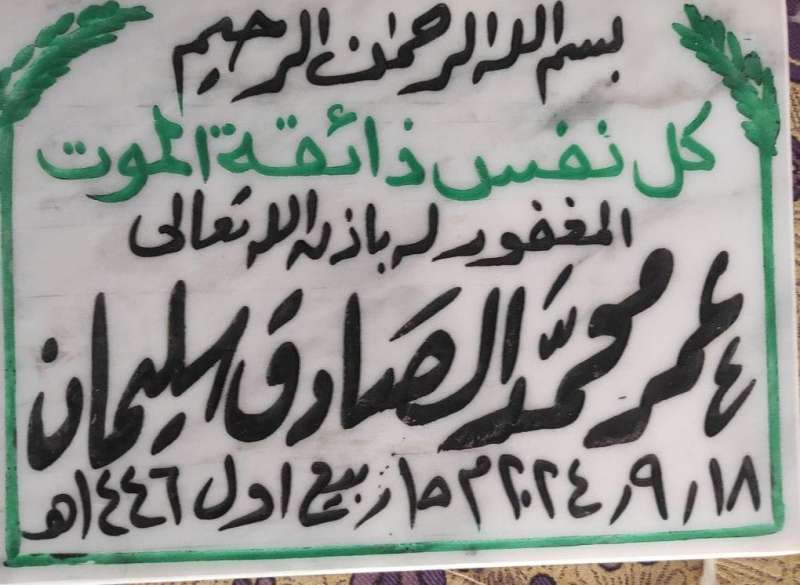 بسم الله الرحمن الرحيم
كل نفس ذائقة الموت
المغفور له باذن الله تعالى
عمر محمَّد الصَادق سليمان
١٨ ر ٩ ر ٢٠٢٤ م ١٥ ربيع اول ١٤٤٦ هـ